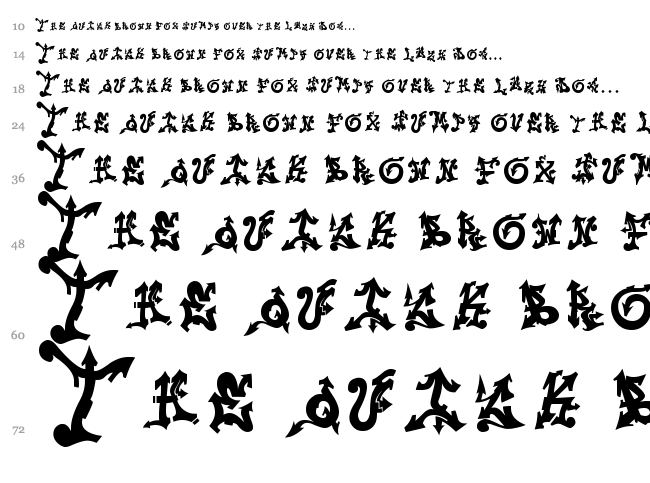 10 The quick brown fox jumps over the lazy dog...
14 The quick brown fox jumps over the lazy dog...
18 The quick brown fox jumps over the lazy dog...
24 The quick brown fox jumps over the l
36 The quick brown fox jum
48 The quick brown f
60 The quick bro
72 The quick b